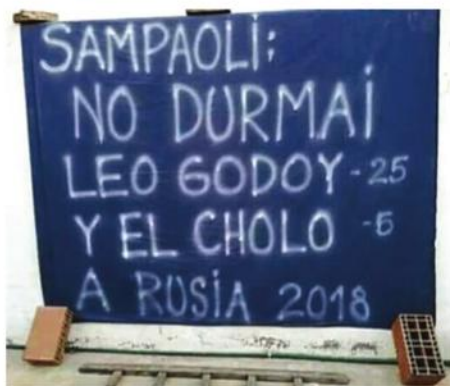 SAMPAOLI:
NO DURMAI
LEO GODOY -25
Y EL CHOLO -5
A RUSIA 2018